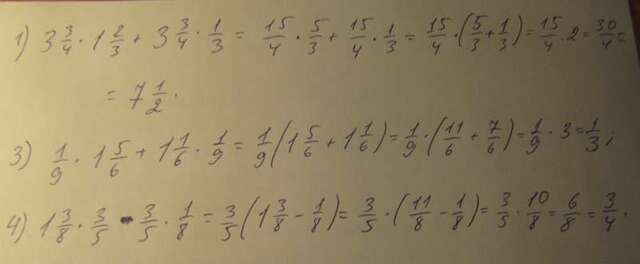 1) 3 3/4 · 1 2/3 + 3 3/4 · 1/3 = 15/4 · 5/3 + 15/4 · 1/3 = 15/4 · (5/3 + 1/3) = 15/4 · 2 = 30/4 =
= 7 1/2 .
3) 1/9 · 1 5/6 + 1 1/6 · 1/9 = 1/9 (1 5/6 + 1 1/6) = 1/9 · (11/6 + 7/6) = 1/9 · 3 = 1/3 ;
4) 1 3/8 · 3/5 - 3/5 · 1/8 = 3/5 (1 3/8 - 1/8) = 3/5 · (11/8 - 1/8) = 3/5 · 10/8 = 6/8 = 3/4 .